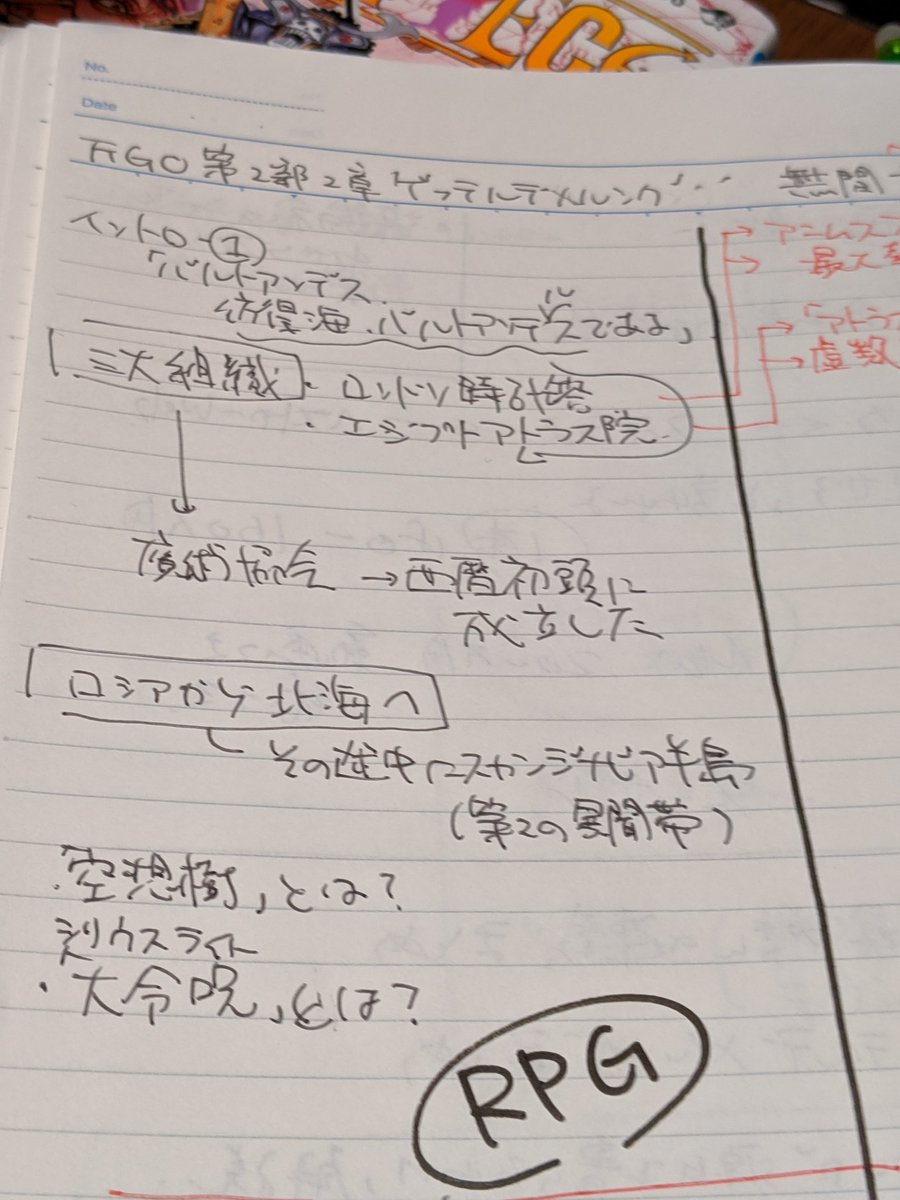 EGO
No.
Date
FGO 第2部2章 ゲッテルデメルング 無間
イントロ-①
「バルトアンデス
彷徨海・バルトアンデルスである」
三大組織・ロンドン時計塔
・エジプトアトラス院
魔術協会→西暦初頭に
成立した
ロシアから北海へ
その途中にスカンジナビア半島
(第2の異聞帯)
・空想樹」とは?
シリウスライト
・大令呪」とは?
RPG
アニムス
最大
「アトラ
虚数